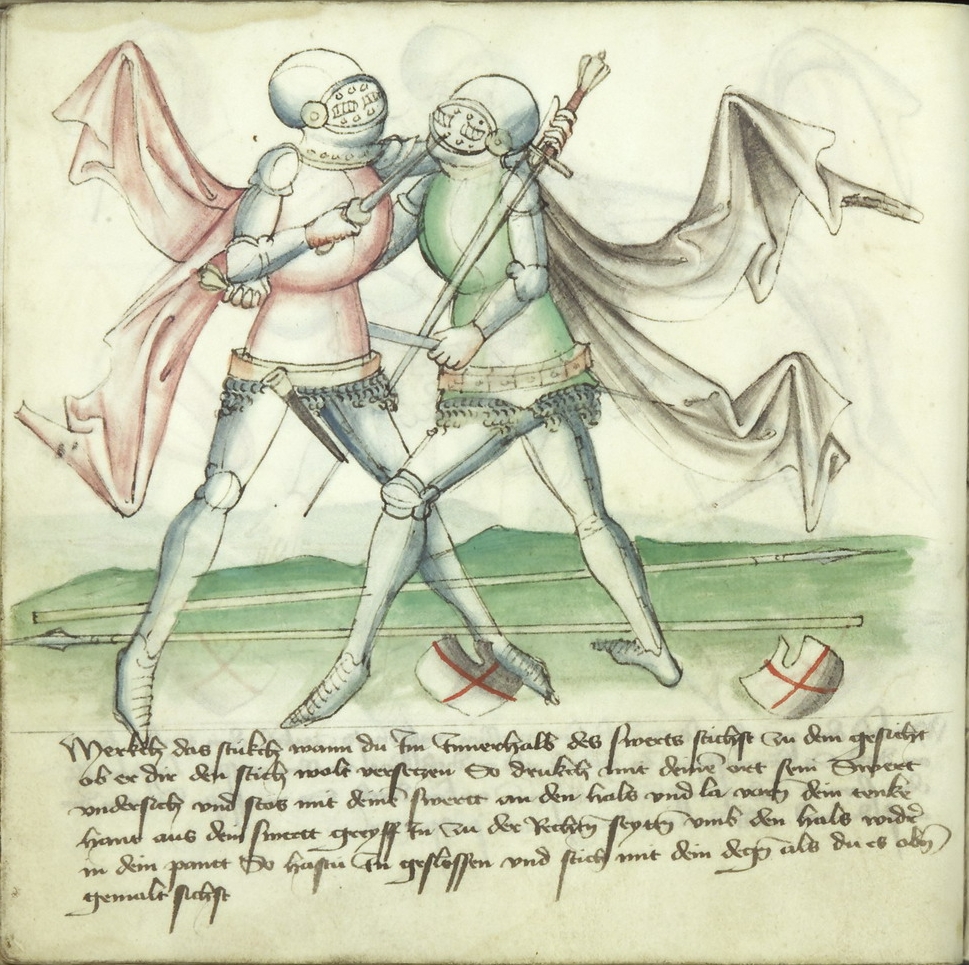 Merkch das stukch wann du Im Innerhalb des swerts stichst zu dem gesicht
ob er dir den stich wolt versetzen So drukch mit deinē ort sein Swert
vndersich vnd stos mit deinē swertt an den hals vnd la varn dein tenke
hant aus dem swertt greyff In zu der Rechtn seyttn vmb den hals widē
in dein pantt So hastu In geslossen vnd stich mit dein degn als du es obn
gemalt sichst